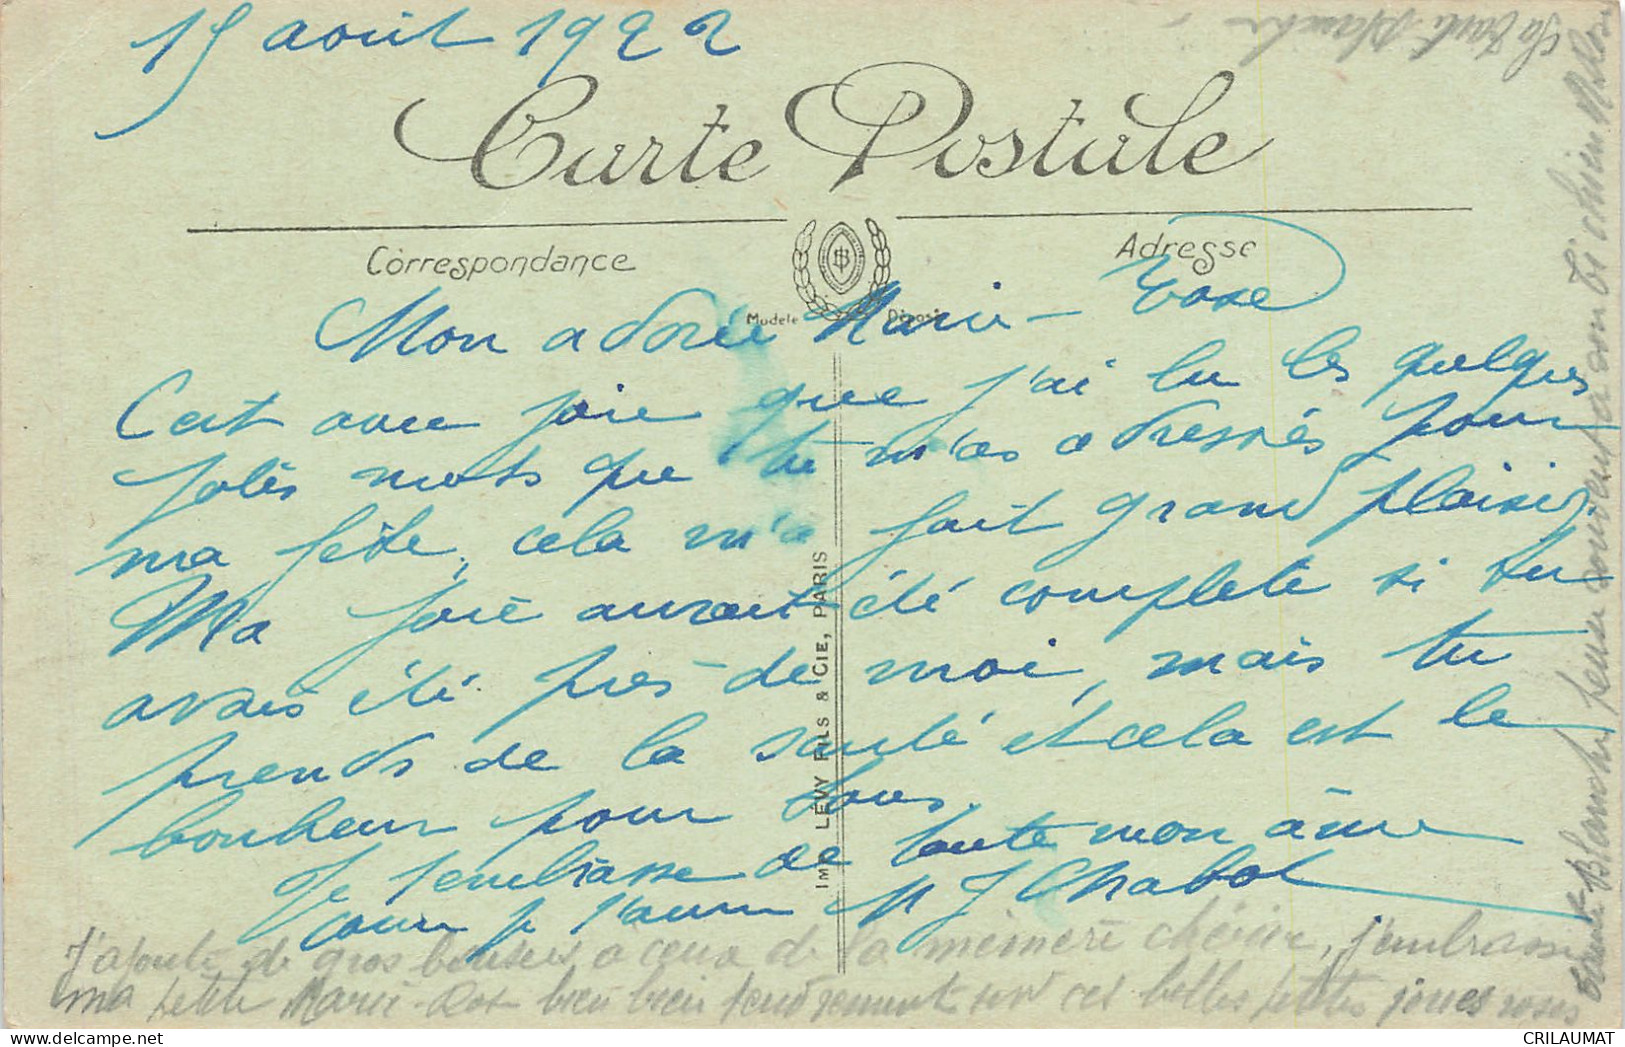 15 août 1922
Carte Postale
Correspondance
Adresse
Modèle Déposé
Mon adorée Marie-Rose
C'est avec joie que j'ai lu les quelques
jolis mots que tu m'as adressés pour
ma fête, cela m'a fait grand plaisir.
Ma joie aurait été complete si tu
avais été près de moi, mais tu
prends de la santé et cela est le
bonheur pour tous.
Je t'embrasse de toute mon âme
comme je t'aime M J Chabot
J'ajoute de gros baisers à ceux de la mémère chérie, j'embrasse
ma petite Marie-Rose bien bien tendrement sur ces belles petites joues roses
Tante Blanche pense souvent à son ti chien
Ta tante Blanche
IMP. LÉVY FILS & CIE, PARIS
CRILAUMAT